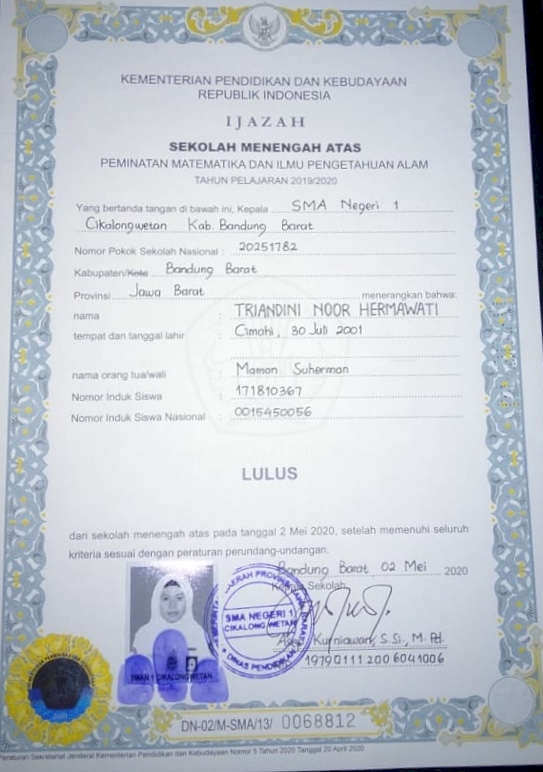 KEMENTERIAN PENDIDIKAN DAN KEBUDAYAAN
REPUBLIK INDONESIA
IJAZAH
SEKOLAH MENENGAH ATAS
PEMINATAN MATEMATIKA DAN ILMU PENGETAHUAN ALAM
TAHUN PELAJARAN 2019/2020
Yang bertanda tangan di bawah ini, Kepala SMA Negeri 1
Cikalongwetan Kab. Bandung Barat
Nomor Pokok Sekolah Nasional : 20251782
Kabupaten/Kota Bandung Barat
Provinsi Jawa Barat menerangkan bahwa:
nama : TRIANDINI NOOR HERMAWATI
tempat dan tanggal lahir : Cimahi, 30 Juli 2001
nama orang tua/wali : Maman Suherman
Nomor Induk Siswa : 171810367
Nomor Induk Siswa Nasional : 0015450056
LULUS
dari sekolah menengah atas pada tanggal 2 Mei 2020, setelah memenuhi seluruh
kriteria sesuai dengan peraturan perundang-undangan.
Bandung Barat, 02 Mei 2020
Kepala Sekolah
SMA NEGERI 1
CIKALONG WETAN
DINAS PENDIDIKAN
Kurniawan, S.Si., M.Pd.
197901112006041006
SMAN 1 CIKALONGWETAN
DN-02/M-SMA/13/ 0068812
Peraturan Sekretariat Jenderal Kementerian Pendidikan dan Kebudayaan Nomor 5 Tahun 2020 Tanggal 20 April 2020